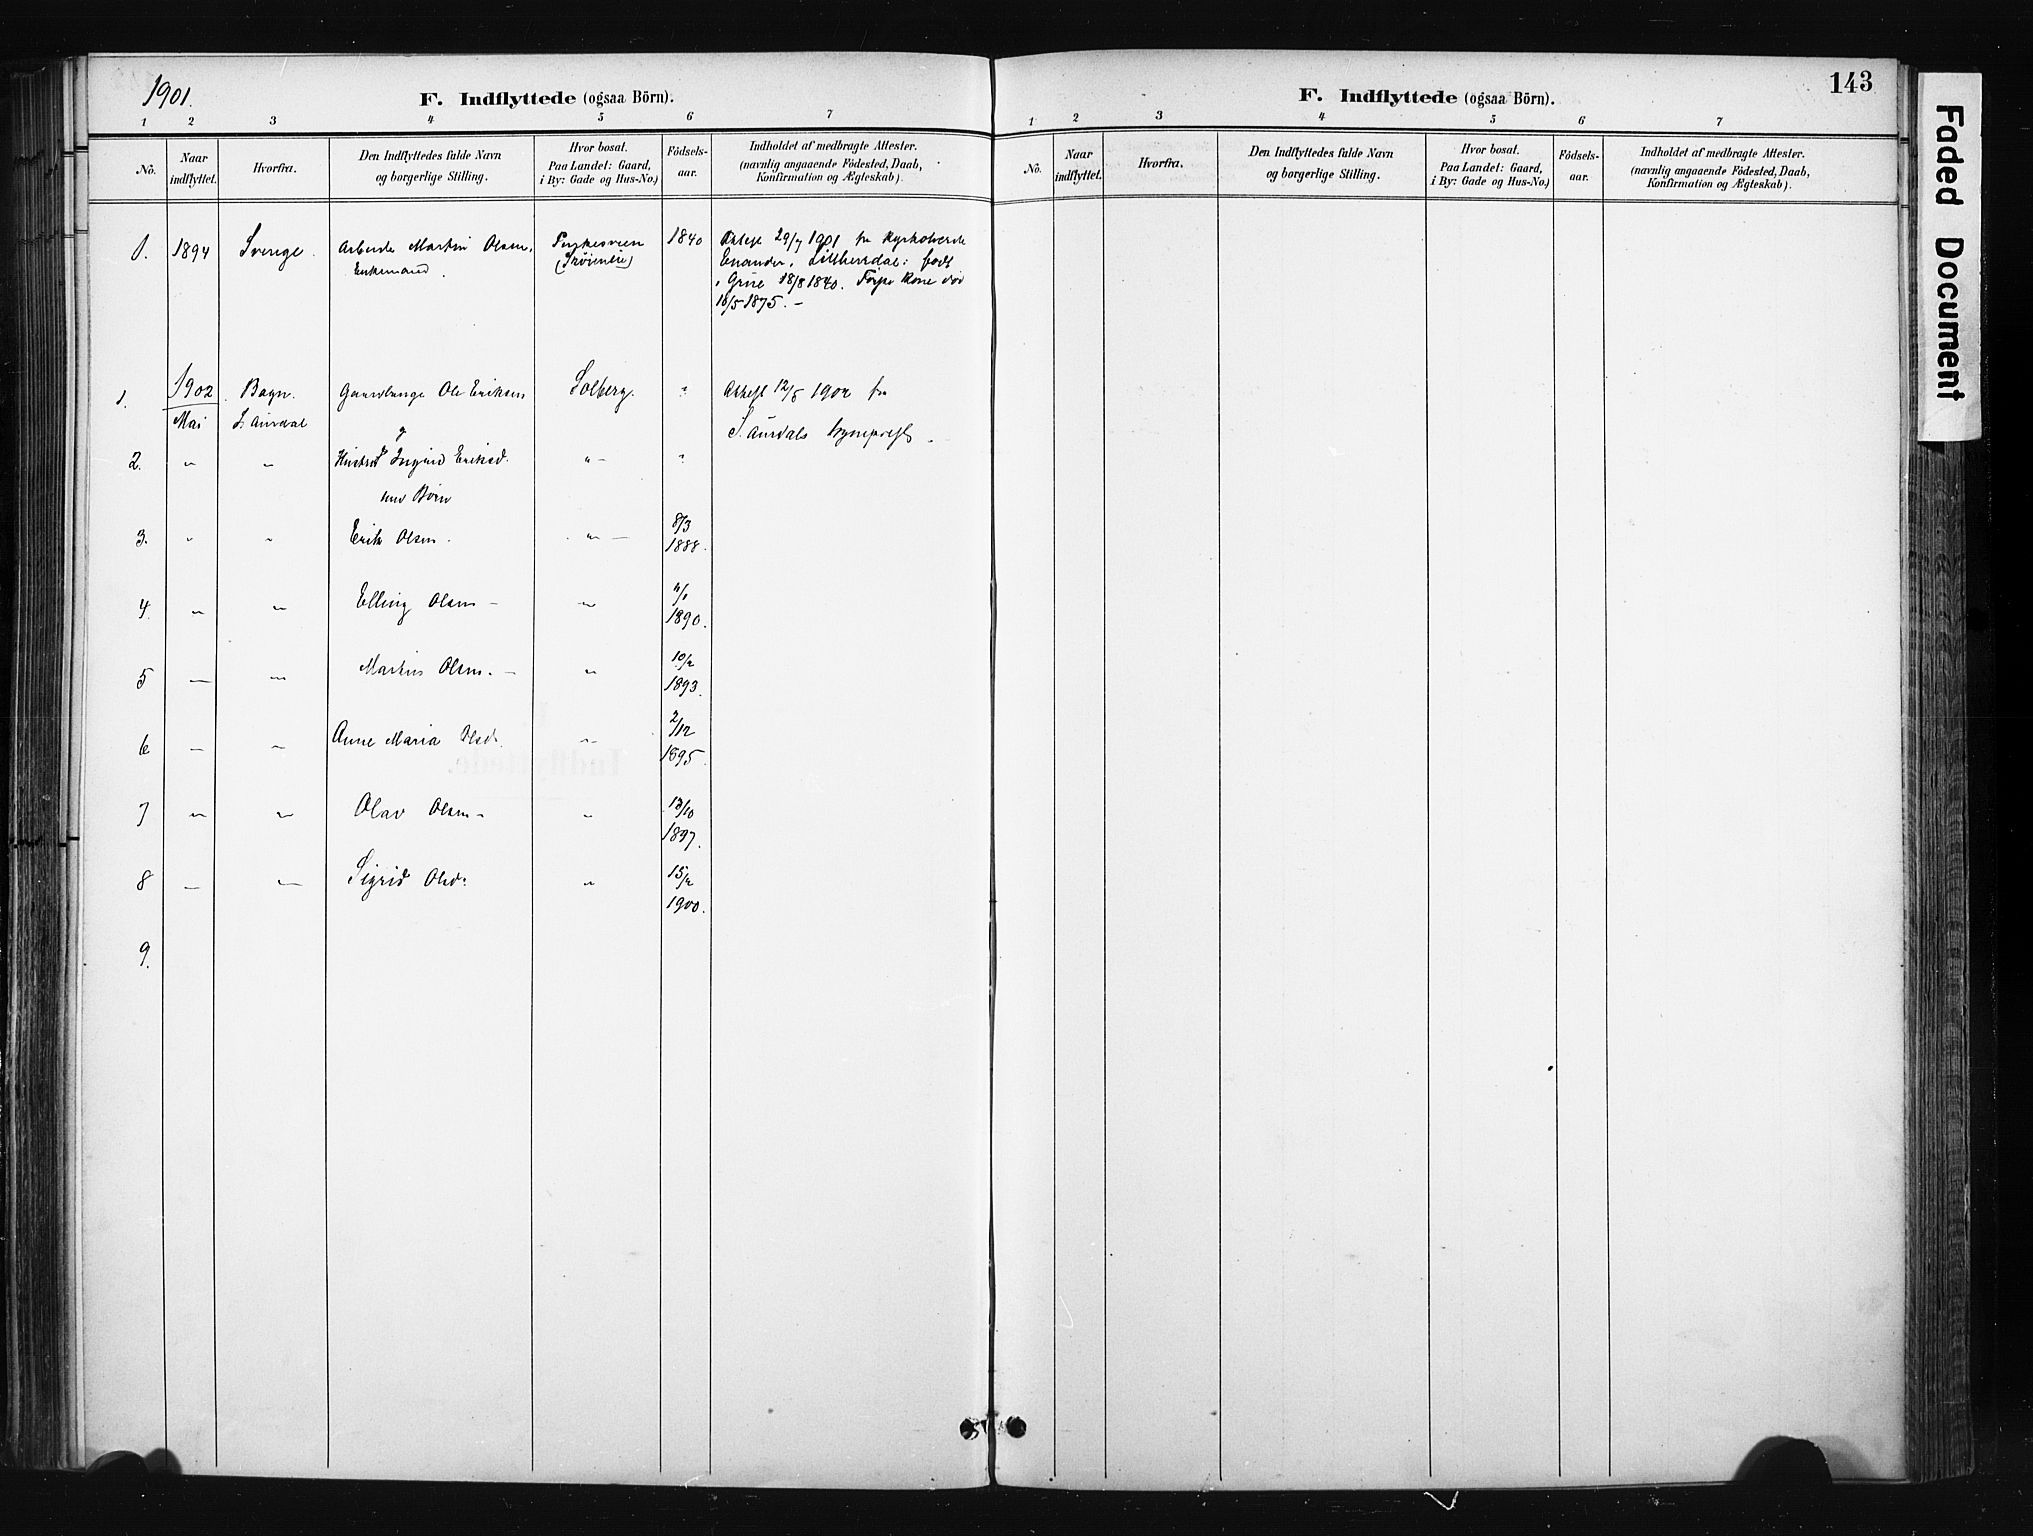 1901.
F. Indflyttede (ogsaa Börn).
1 2 3 4 5 6 7
No. Naar indflyttet. Hvorfra. Den Indflyttedes fulde Navn og borgerlige Stilling. Hvor bosat. Paa Landet: Gaard, i By: Gade og Hus-No.) Födsels-aar. Indholdet af medbragte Attester. (navnlig angaaende Födested, Daab, Konfirmation og Ægteskab).
1. 1894 Sverige. Martin Olsen, 1840 Attest 29/7 1901 fr
Enkemand.
18/8 1840. Kone död
18/5 1875. –
1. 1902 Bagn. Ole Eriksen Solberg. " Attest 12/5 1902 fr
Mai S. Aurdal S. Aurdals
2. " " Ingrid Eriksd. " – "
Børn
3. " " Erik Olsen. " – 8/3
1888.
4. " " Elling Olsen – "
1890.
5 " " Martin Olsen. – " 10/2
1893.
6 " " Anne Maria Olsd. " 2/12
1895.
7 " " Olav Olsen – " 13/10
1897.
8 " " Sigrid Olsd. " 15/2
1900.
9.
143
F. Indflyttede (ogsaa Börn).
1 2 3 4 5 6 7
No. Naar indflyttet. Hvorfra. Den Indflyttedes fulde Navn og borgerlige Stilling. Hvor bosat. Paa Landet: Gaard, i By: Gade og Hus-No.) Födsels-aar. Indholdet af medbragte Attester. (navnlig angaaende Födested, Daab, Konfirmation og Ægteskab).
Faded Document